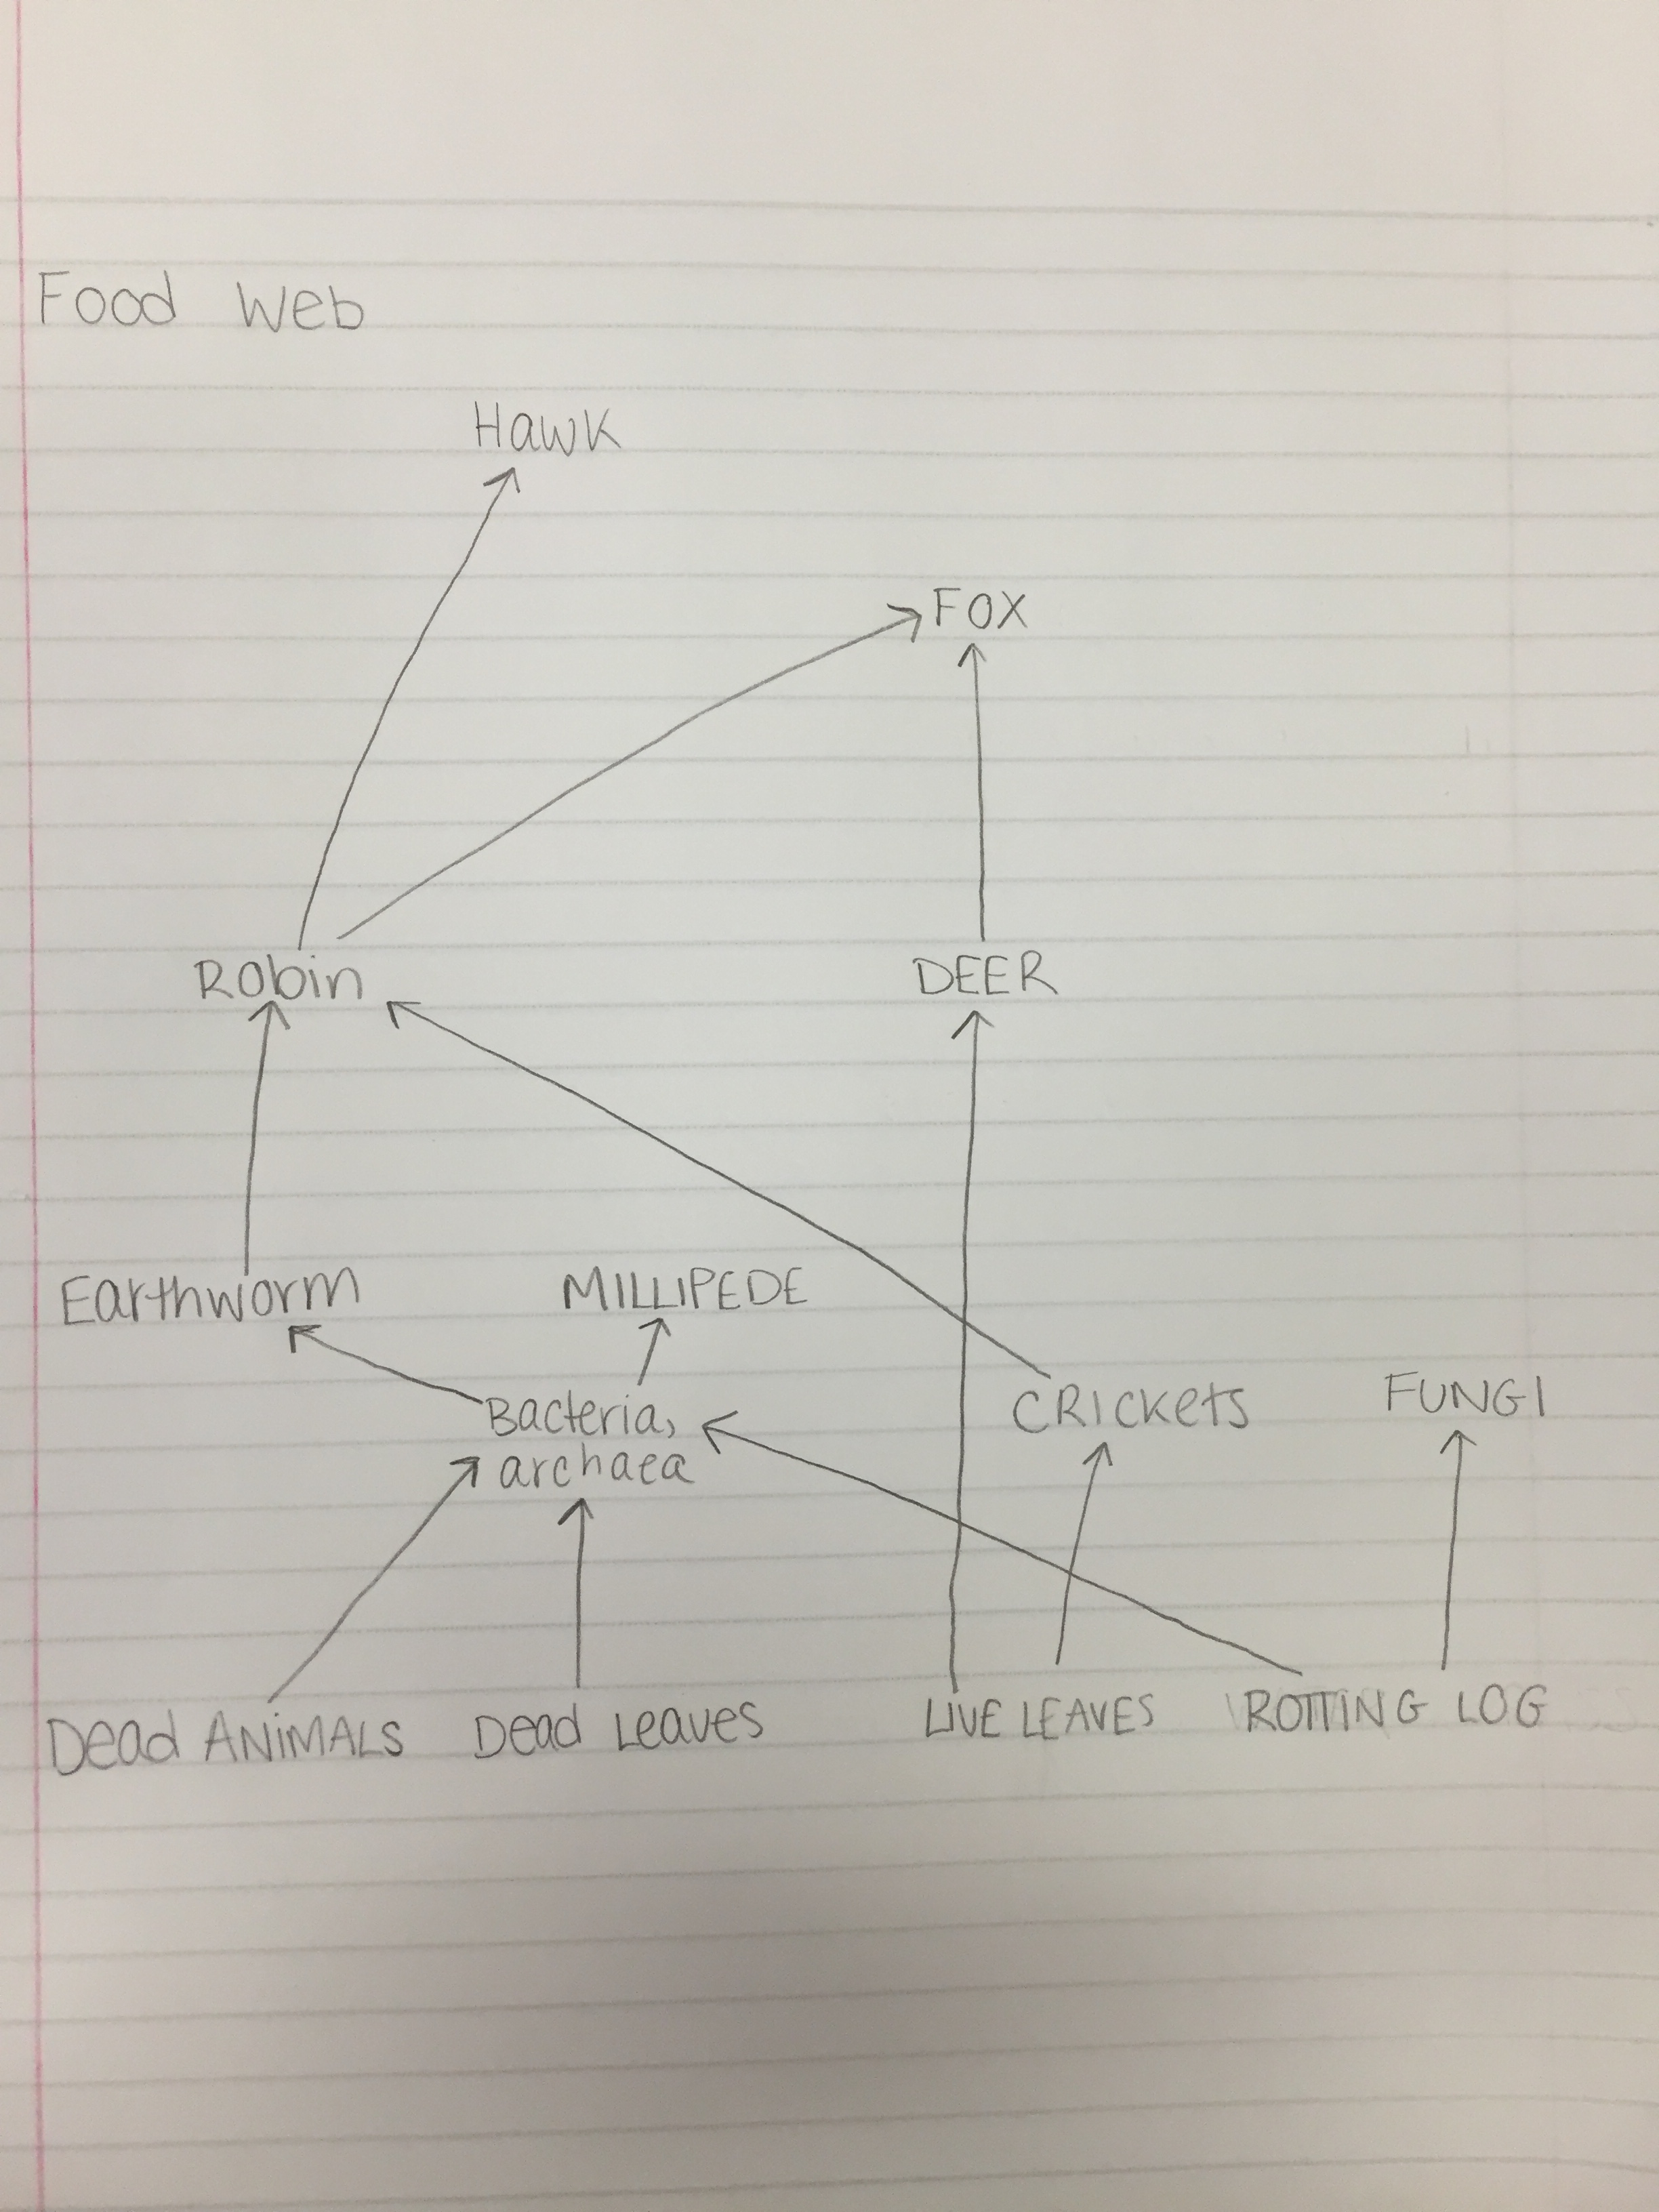 Food Web
Hawk
FOX
Robin
DEER
Earthworm
MILLIPEDE
Bacteria,
archaea
CRICKets
FUNGI
Dead ANiMALS
Dead Leaves
LIVE LEAVES
ROTTING LOG